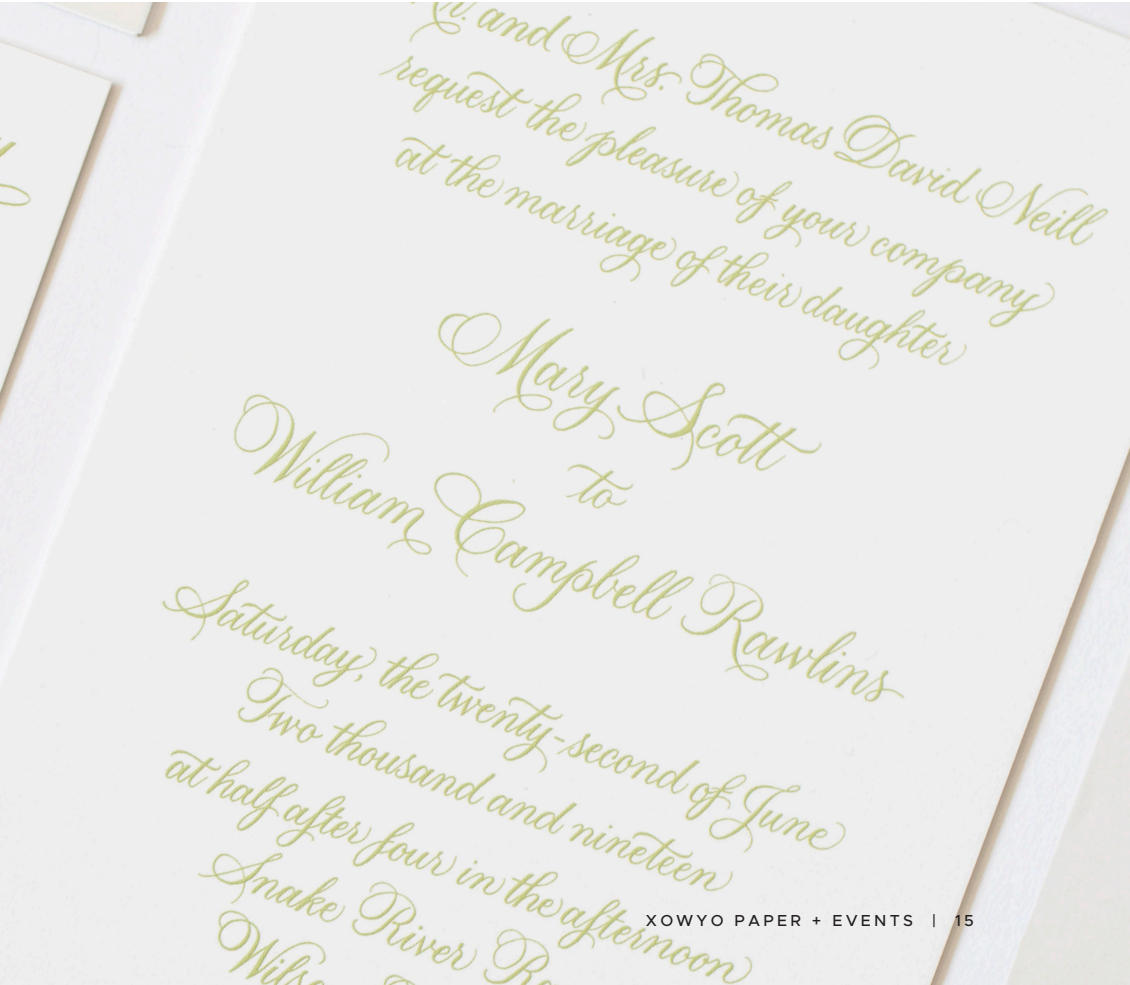 and Mrs. Thomas David Neill
request the pleasure of your company
at the marriage of their daughter
Mary Scott
to
William Campbell Rawlins
Saturday, the twenty-second of June
Two thousand and nineteen
at half after four in the afternoon
Snake River
XOWYO PAPER + EVENTS | 15